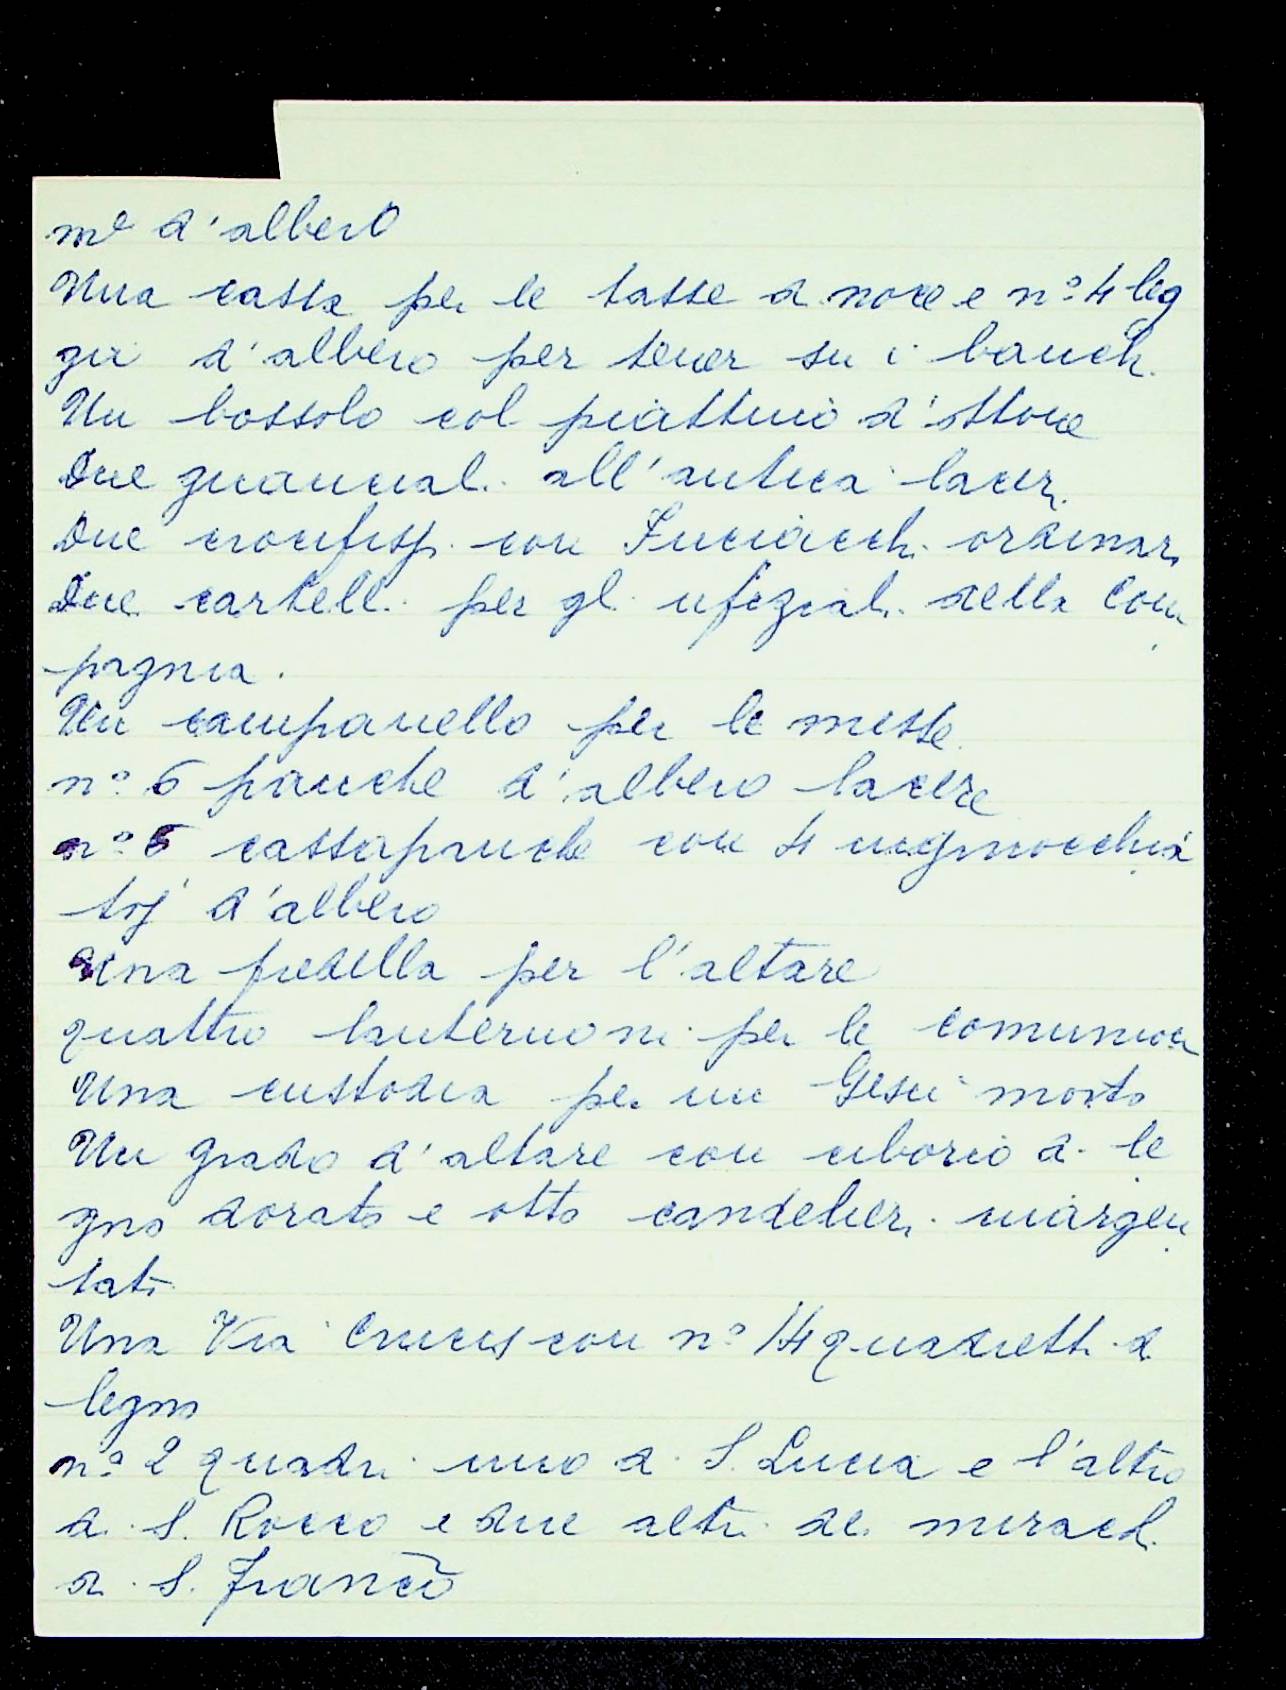 me d'albero
Una cassa per le tasse di noce e n.º 4 leg
gii d'albero per tener su i banchi.
Un bossolo col piattino d'ottone
Due guanciali all'antica laceri
Due crocifissi con ordinari
Due cartelli per gli ufiziali della Com
pagnia.
Un campanello per le messe.
n.º 6 panche d'albero lacere
n.º 6 cassapanche con 4 inginocchia
toj d'albero
Una predella per l'altare
quattro lanternoni per le comunioni
Una custodia per un Gesù morto
Un grado d'altare con ciborio di le
gno dorato e otto candelieri inargen
tati
Una Via Crucis con n.º 14 quadretti di
legno
n.º 2 quadri uno di S. Lucia e l'altro
di S. Rocco e due altri dei miracoli
di S. Franco